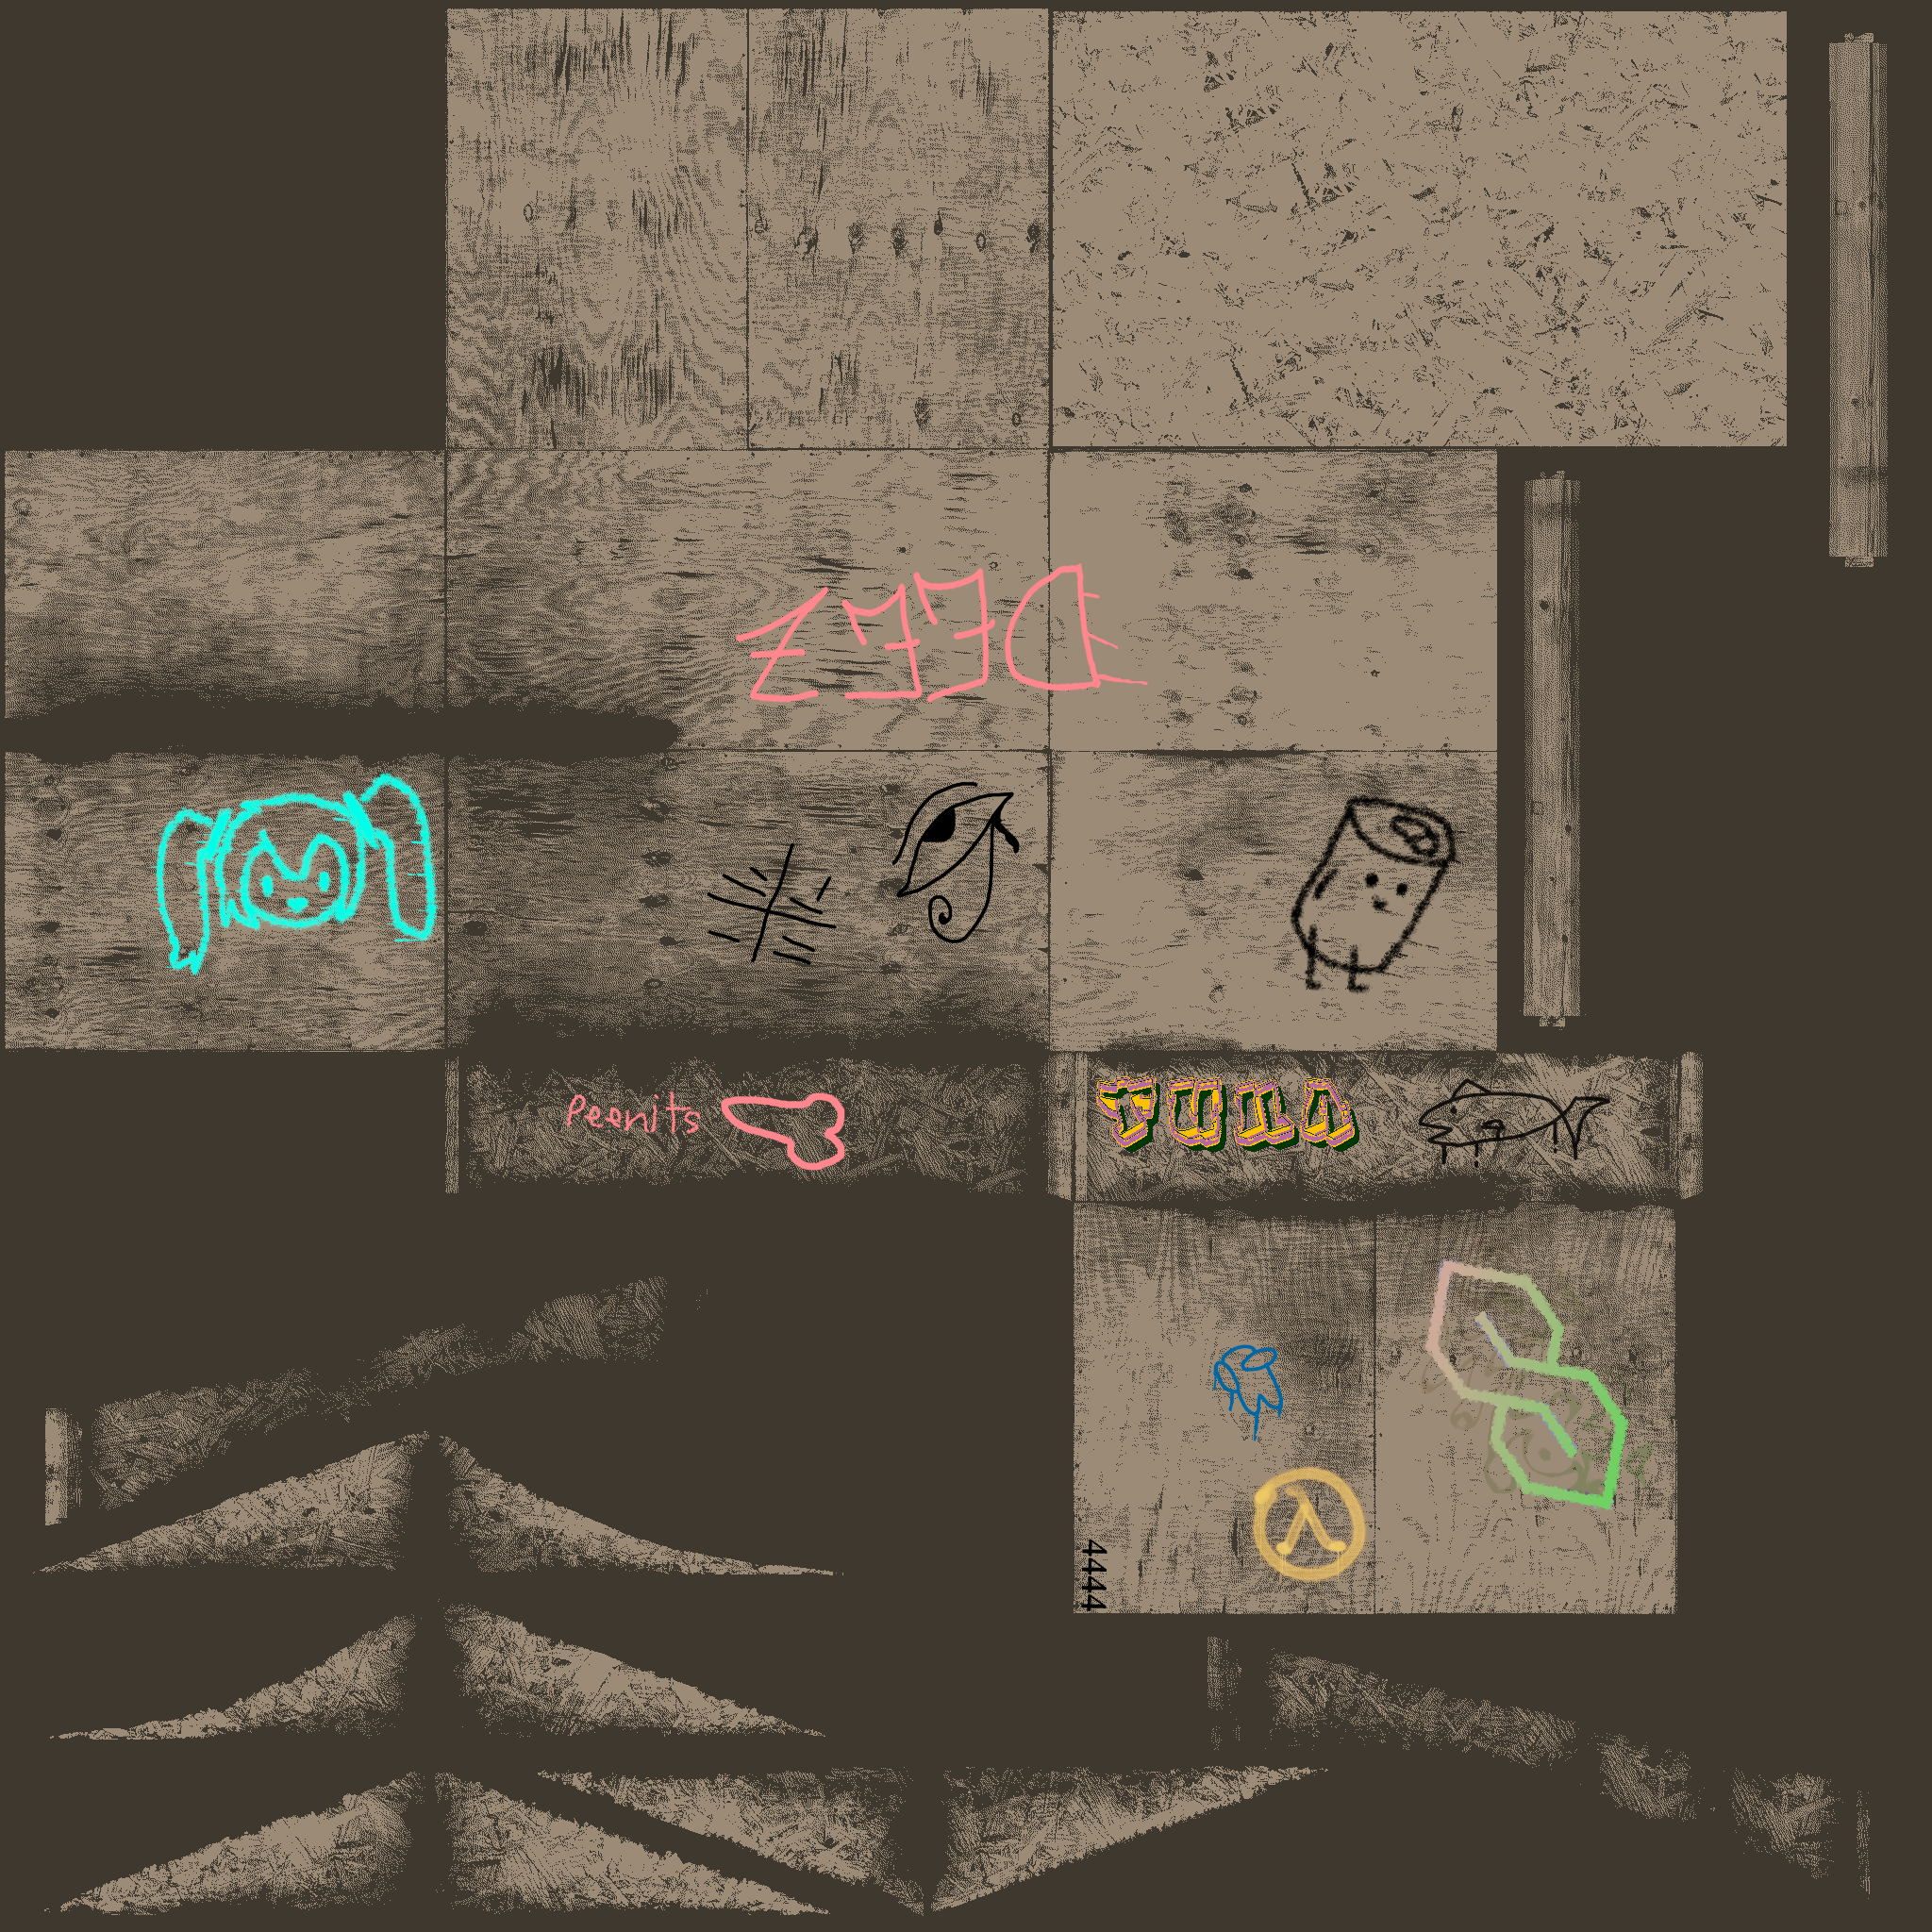 DEEZ
Peenits
TUNA
λ
4444